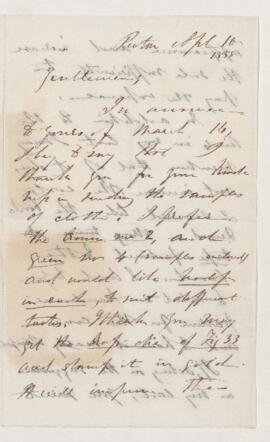 Boston Apl 10
1855
Gentlemen
In answer
to yours of March 14,
I beg to say that I
thank you for your kind
ness in sending the samples
of cloth; I prefer
the brown no 2, and
green no 4
and would like half
in each to suit different
tastes. I think you may
get the die of
and stamp it in gold.
It will improve the